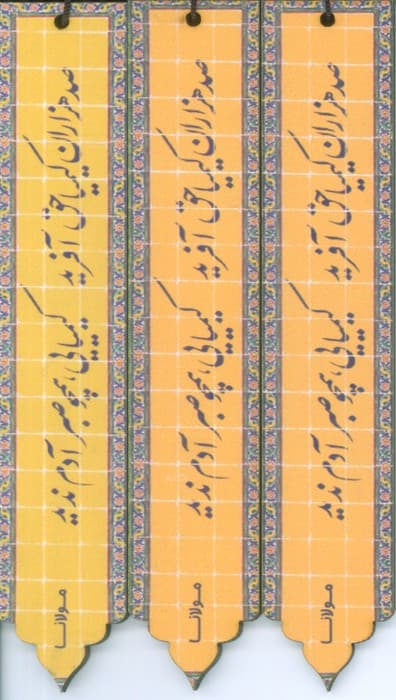 صد هزاران کیمیا حق آفرید
کیمیایی همچو صبر آدم ندید
مولانا
صد هزاران کیمیا حق آفرید
کیمیایی همچو صبر آدم ندید
مولانا
صد هزاران کیمیا حق آفرید
کیمیایی همچو صبر آدم ندید
مولانا